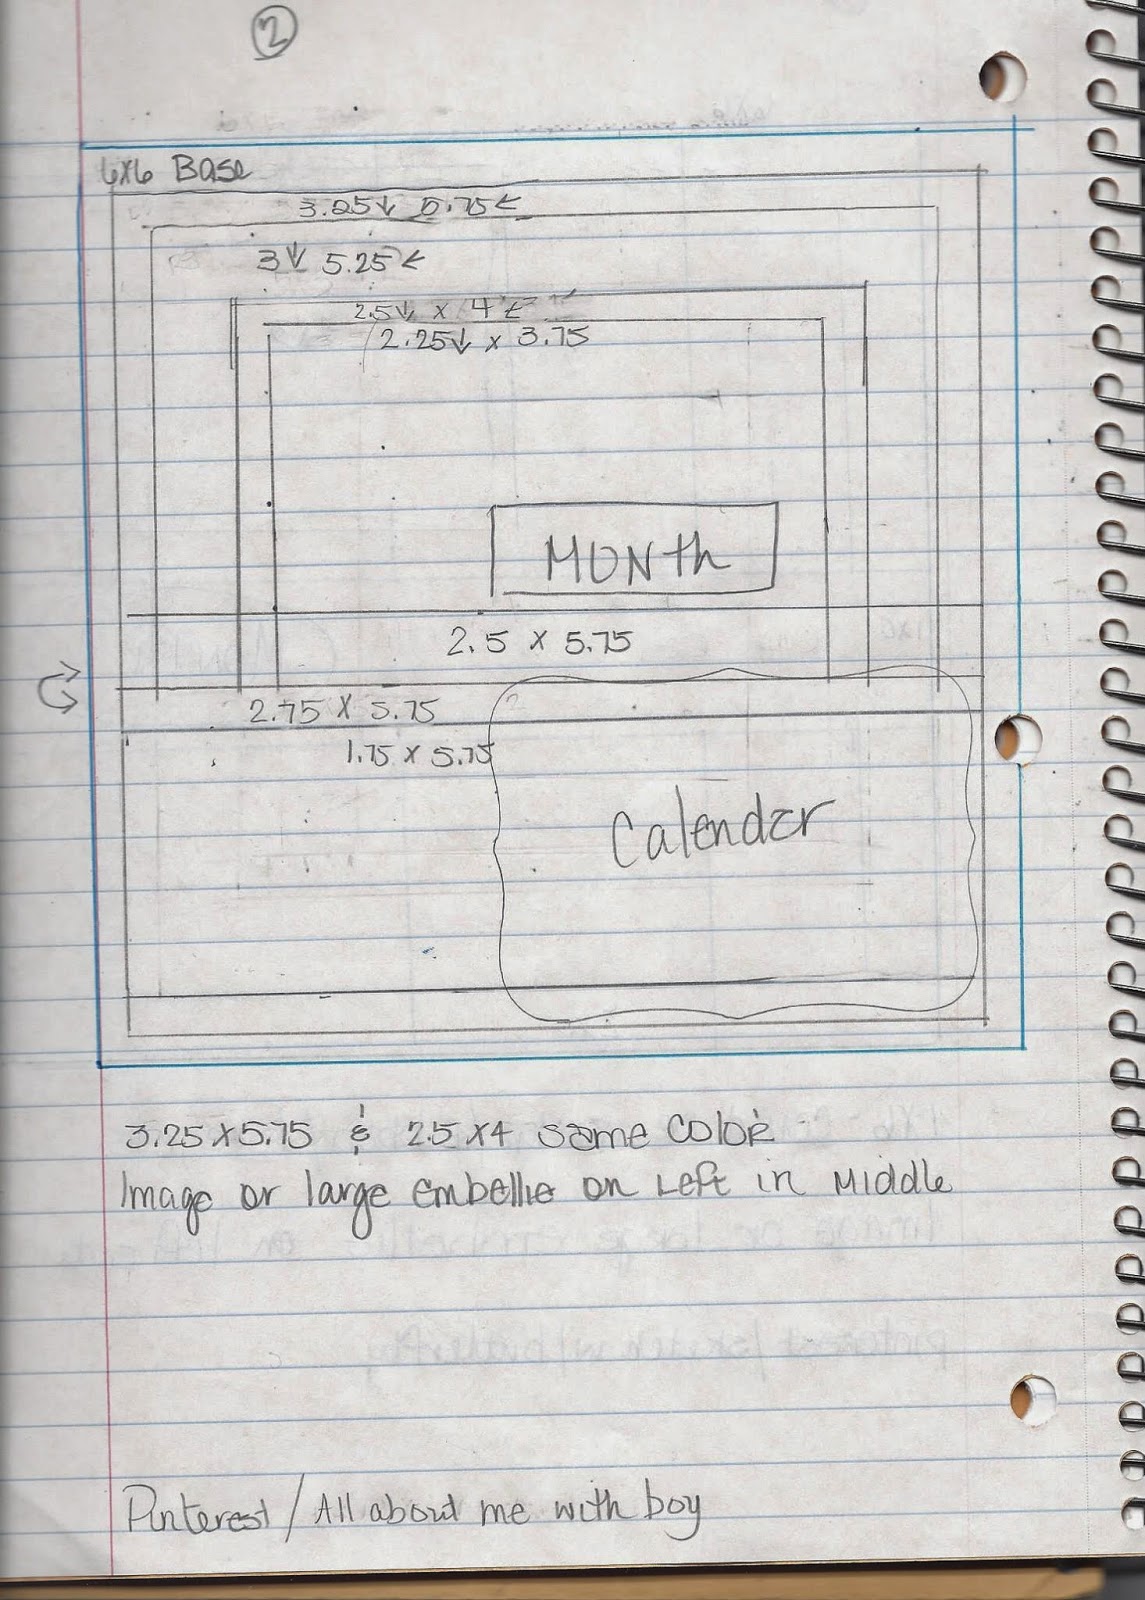 2
6x6 Base
3.25↓ 5.75←
3↓ 5.25←
2.5↓ x 4←
2.25↓ x 3.75
Month
2.5 x 5.75
2.75 x 5.75
1.75 x 5.75
Calendar
3.25x5.75 & 2.5x4 same color
Image or large embellie on Left in Middle
Pinterest / All about me with boy